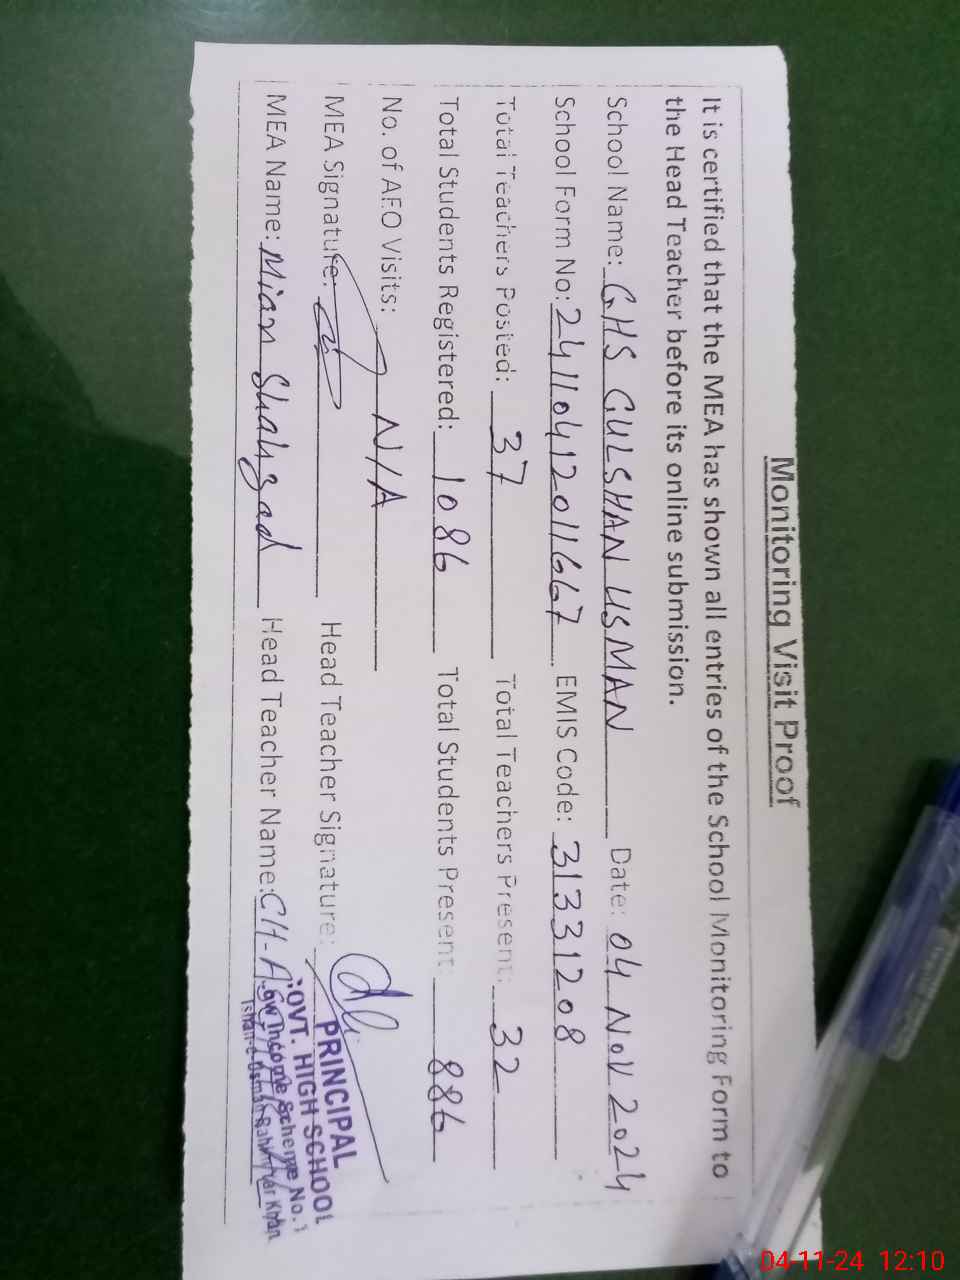 Monitoring Visit Proof
It is certified that the MEA has shown all entries of the School Monitoring Form to
the Head Teacher before its online submission.
School Name: GHS GULSHAN USMAN Date: 04 NOV 2024
School Form No: 24110412011667 EMIS Code: 31331208
Total Teachers Posted: 37 Total Teachers Present: 32
Total Students Registered: 1086 Total Students Present: 886
No. of AEO Visits: N/A
MEA Signature: Head Teacher Signature:
MEA Name: Mian Shahzad Head Teacher Name: CH-A
PRINCIPAL
GOVT. HIGH SCHOOL
Low Income Scheme No. 1
Rahim Yar Khan
04-11-24 12:10